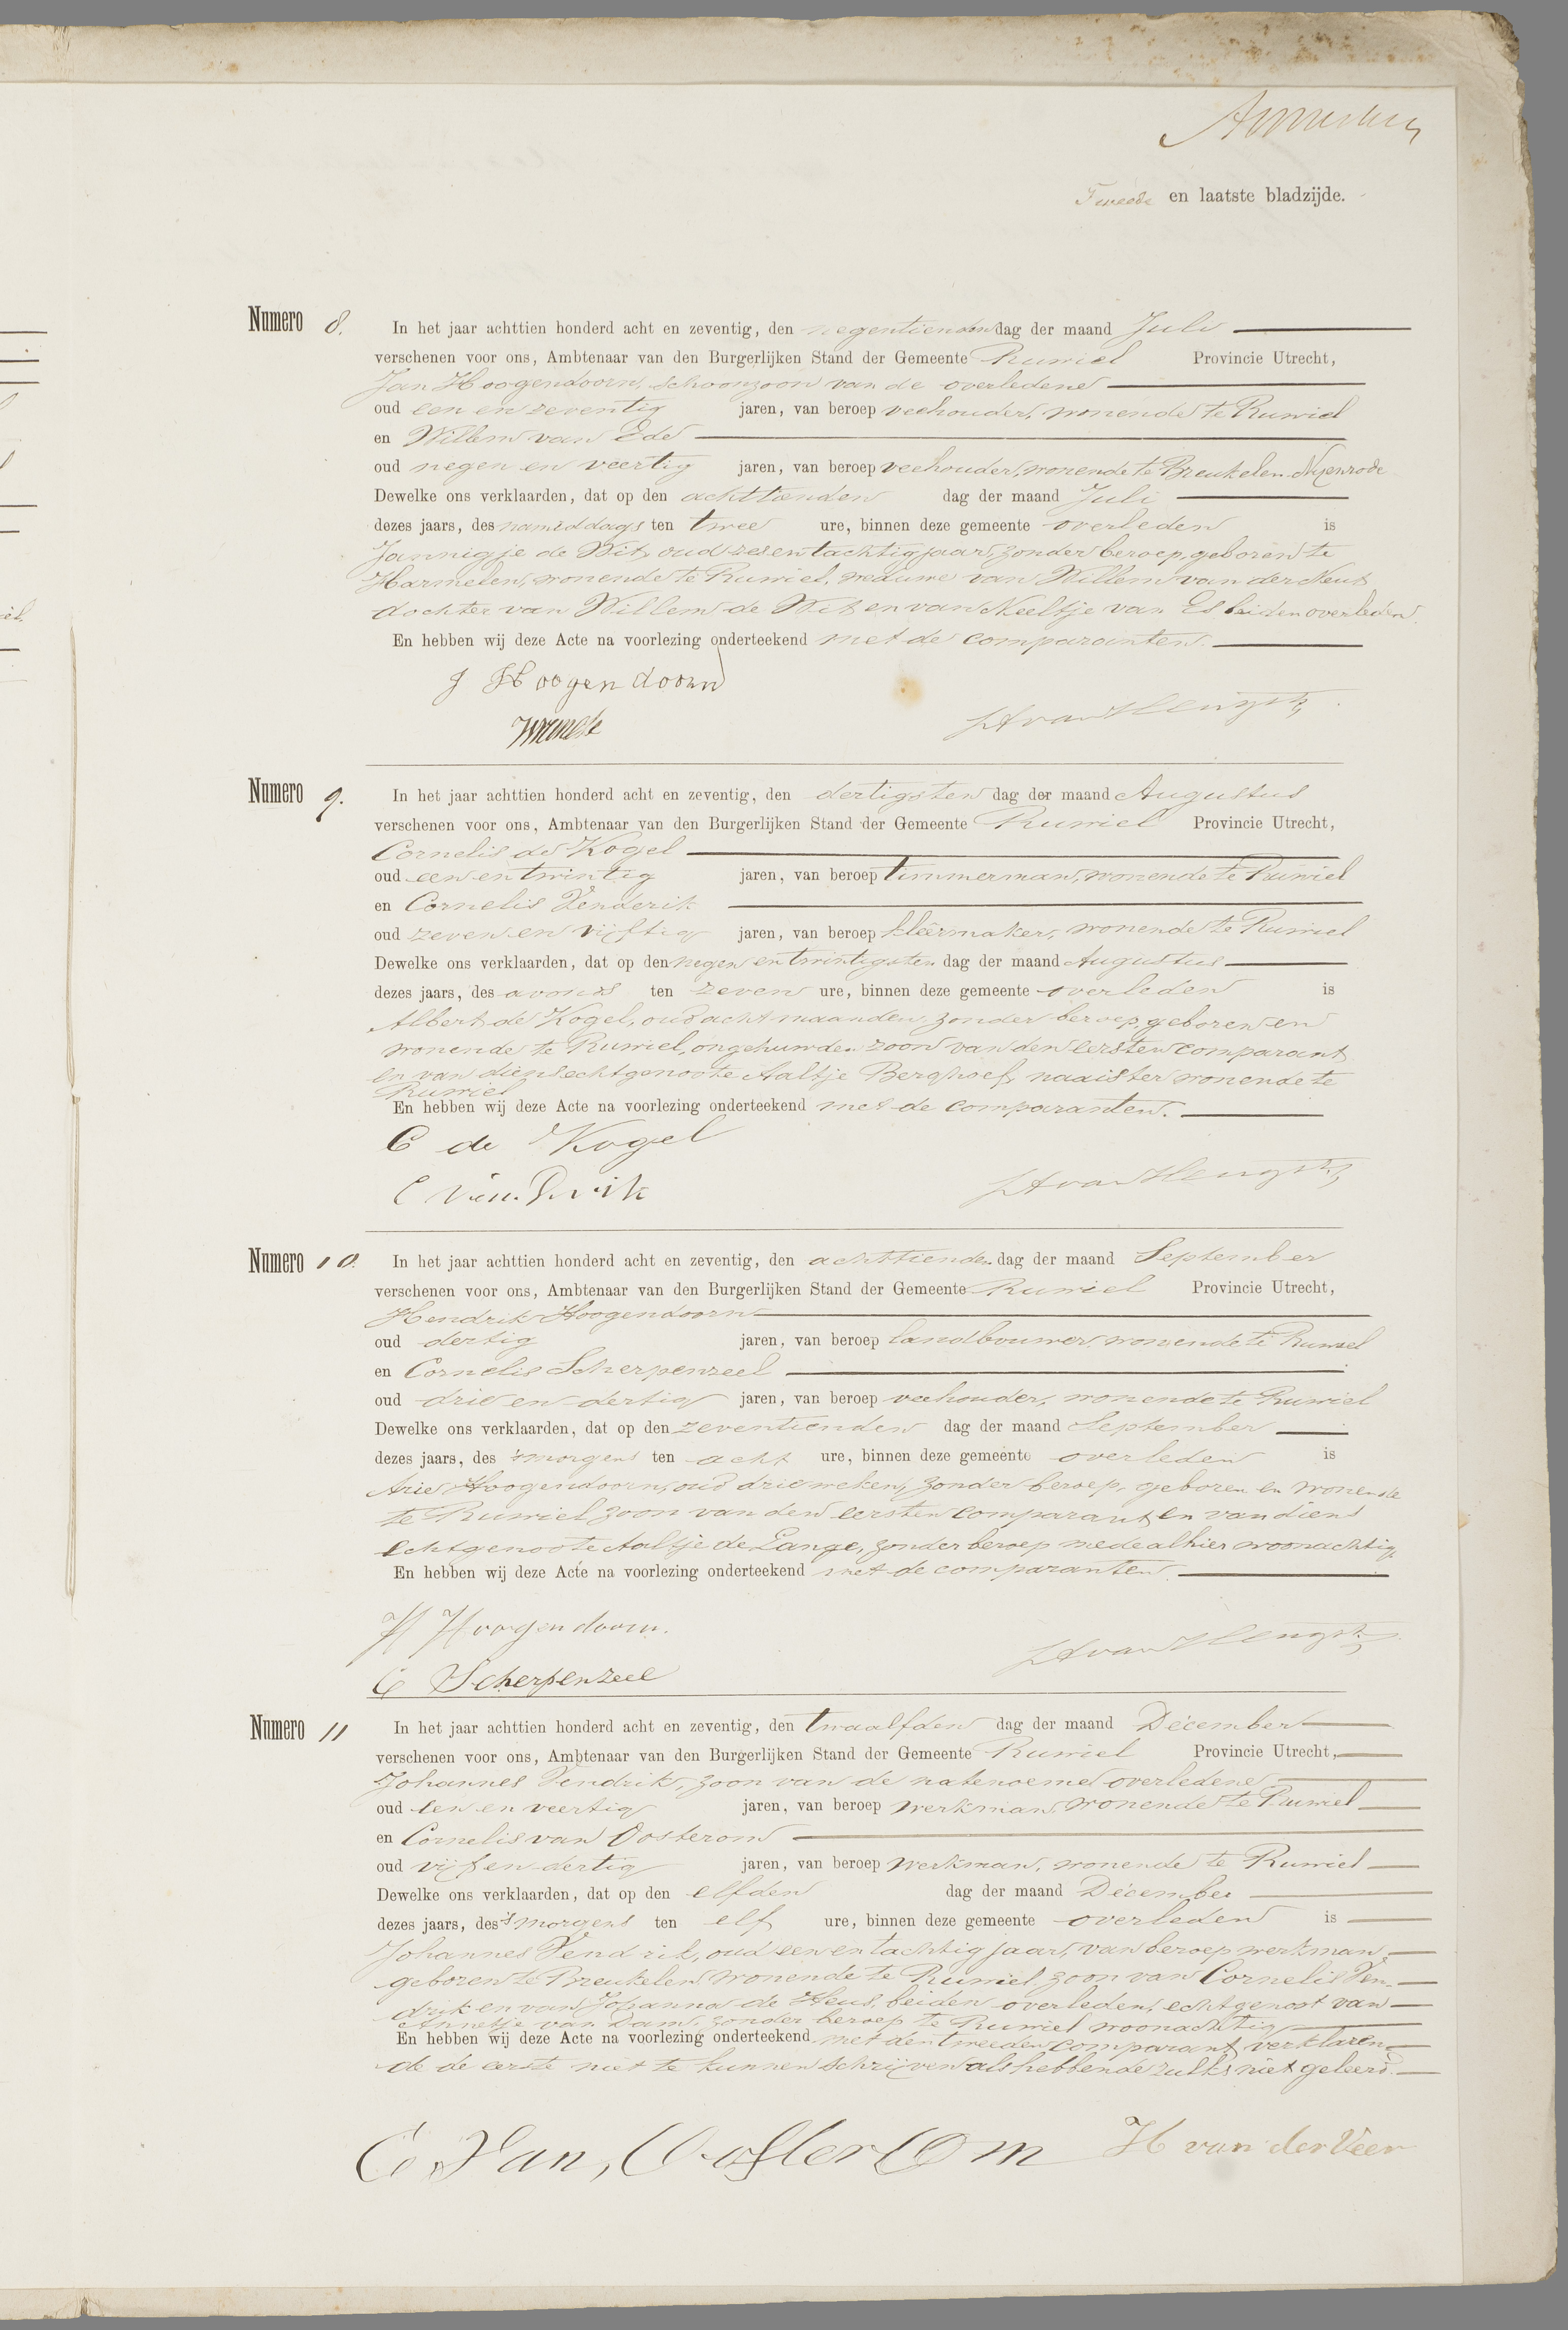 Tweede en laatste bladzijde.
Numero 8. In het jaar achttien honderd acht en zeventig, den negentienden dag der maand Juli
verschenen voor ons, Ambtenaar van den Burgerlijken Stand der Gemeente Ruwiel Provincie Utrecht,
Jan Hoogendoorn, schoonzoon van de overledene
oud een en zeventig jaren, van beroep veehouder, wonende te Ruwiel
en Willem van Ede
oud negen en veertig jaren, van beroep veehouder, wonende te Breukelen Nijenrode
Dewelke ons verklaarden, dat op den achttienden dag der maand Juli
dezes jaars, des namiddags ten twee ure, binnen deze gemeente overleden is
Jannigje de Wit, oud zes en tachtig jaar, zonder beroep, geboren te
Harmelen, wonende te Ruwiel, weduwe van Willem van der Neut
dochter van Willem de Wit en van Neeltje van Es beiden overleden.
En hebben wij deze Acte na voorlezing onderteekend met de comparanten.
J Hoogendoorn
Numero 9. In het jaar achttien honderd acht en zeventig, den dertigsten dag der maand Augustus
verschenen voor ons, Ambtenaar van den Burgerlijken Stand der Gemeente Ruwiel Provincie Utrecht,
Cornelis de Kogel
oud een en twintig jaren, van beroep timmerman, wonende te Ruwiel
en Cornelis Venderik
oud zeven en vijftig jaren, van beroep kleêrmaker, wonende te Ruwiel
Dewelke ons verklaarden, dat op den negen en twintigsten dag der maand Augustus
dezes jaars, des avonds ten zeven ure, binnen deze gemeente overleden is
Albert de Kogel, oud acht maanden, zonder beroep, geboren en
wonende te Ruwiel, ongehuwden zoon van den eersten comparant
en van diens echtgenoote Aaltje Berghoef, naaister wonende te
Ruwiel
En hebben wij deze Acte na voorlezing onderteekend met de comparanten.
C de Kogel
Numero 10. In het jaar achttien honderd acht en zeventig, den achttienden dag der maand September
verschenen voor ons, Ambtenaar van den Burgerlijken Stand der Gemeente Ruwiel Provincie Utrecht,
Hendrik Hoogendoorn
oud dertig jaren, van beroep landbouwer, wonende te Ruwiel
en Cornelis Scherpenzeel
oud drie en dertig jaren, van beroep veehouder, wonende te Ruwiel
Dewelke ons verklaarden, dat op den zeventienden dag der maand September
dezes jaars, des 'smorgens ten acht ure, binnen deze gemeente overleden is
Arie Hoogendoorn, oud drie weken, zonder beroep, geboren en wonende
te Ruwiel zoon van den eersten comparant en van diens
echtgenoote Aaltje de Lange, zonder beroep mede alhier woonachtig.
En hebben wij deze Acte na voorlezing onderteekend met de comparanten.
H Hoogendoorn.
C Scherpenzeel
Numero 11 In het jaar achttien honderd acht en zeventig, den twaalfden dag der maand December
verschenen voor ons, Ambtenaar van den Burgerlijken Stand der Gemeente Ruwiel Provincie Utrecht,
Johannes Vendrik, zoon van de natenoemen overledene
oud een en veertig jaren, van beroep werkman wonende te Ruwiel
en Cornelis van Oosterom
oud vijf en dertig jaren, van beroep werkman, wonende te Ruwiel
Dewelke ons verklaarden, dat op den elfden dag der maand December
dezes jaars, des 'smorgens ten elf ure, binnen deze gemeente overleden is
Johannes Vendrik, oud een en tachtig jaar, van beroep werkman,
geboren te Breukelen wonende te Ruwiel, zoon van Cornelis Ven-
drik en van Johanna de Heus, beiden overleden, echtgenoot van
Annetje van Dam, zonder beroep te Ruwiel woonachtig
En hebben wij deze Acte na voorlezing onderteekend met den tweeden comparant, verklaren-
de de eerste niet te kunnen schrijven als hebbende zulks niet geleerd.
C Van, Oosterom H van der Veer